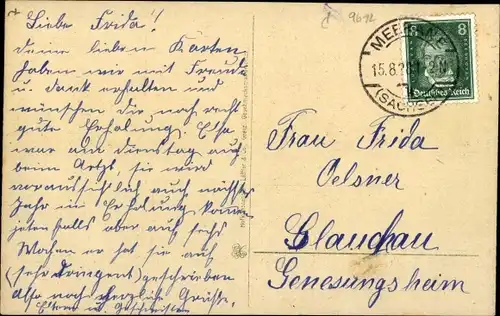 Liebe Frida!
Deine lieben Karten
haben wir mit Freude
u. Dank erhalten und
wünschen dir noch recht
gute Erholung. Elsa
war am Dienstag auch
beim Arzt, sie wird
voraussichtlich auch nächstes
Jahr in Erholung kommen
jedenfalls aber auf sechs
Wochen er hat sie auch
(sehr dringent) geschrieben
Also noch herzliche Grüße
Eltern u. Geschwister
MEERANE
15.8.
(SACHS
8 8
Deutsches Reich
Frau Frida
Oelsner
Glauchau
Genesungsheim